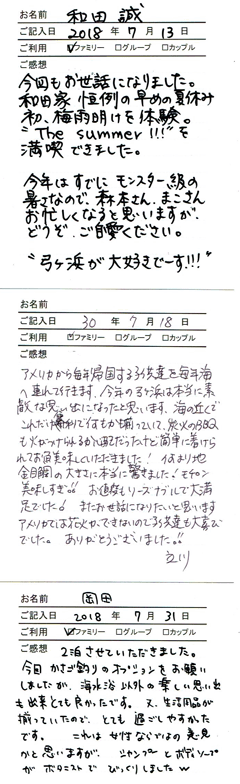 お名前 和田 誠
ご記入日 2018 年 7 月 13 日
ご利用 ☑ファミリー □グループ □カップル
ご感想
今回もお世話になりました。
和田家 恒例の早めの夏休み
初、梅雨明けを体験。
"The summer!!!"を
満喫できました。
今年はすでに モンスター級の
暑さなので、 本さん、まこさん
お忙しくなると思いますが、
どうぞ、ご自愛ください。
"弓ヶ浜が大好きでーす!!!"
お名前
ご記入日 30 年 7 月 18 日
ご利用 ☑ファミリー □グループ □カップル
ご感想
アメリカから毎年帰国する子供達を毎年海
へ連れて行きます。今年の弓ヶ浜は本当に素
敵な思い出になったと思います。海の近くで
これだけ 何もかも揃っていて、炭火のBBQ
も火がつけられるか心配だったけど簡単に着けら
れてお魚美味しくいただきました!
金目鯛の大きさに本当に驚きました!モチロン
美味しすぎ!! お値段もリーズナブルで大満
足でした! またお世話になりたいと思います
アメリカでは花火ができないので子供達も大喜び
でした。 ありがとうございました!!
立川
お名前 岡田
ご記入日 2018 年 7 月 31 日
ご利用 ☑ファミリー □グループ □カップル
ご感想 2泊させていただきました。
今回 かさご釣りのオプションをお願い
しましたが、海水浴以外の楽しい思い出
も出来とても良かったです。又、生活用品が
揃っていたので、とても過ごしやすかった
です。 これは女性ならではの発見
かと思いますが、シャンプーとボディソープ
がボタニストでびっくりしましたw